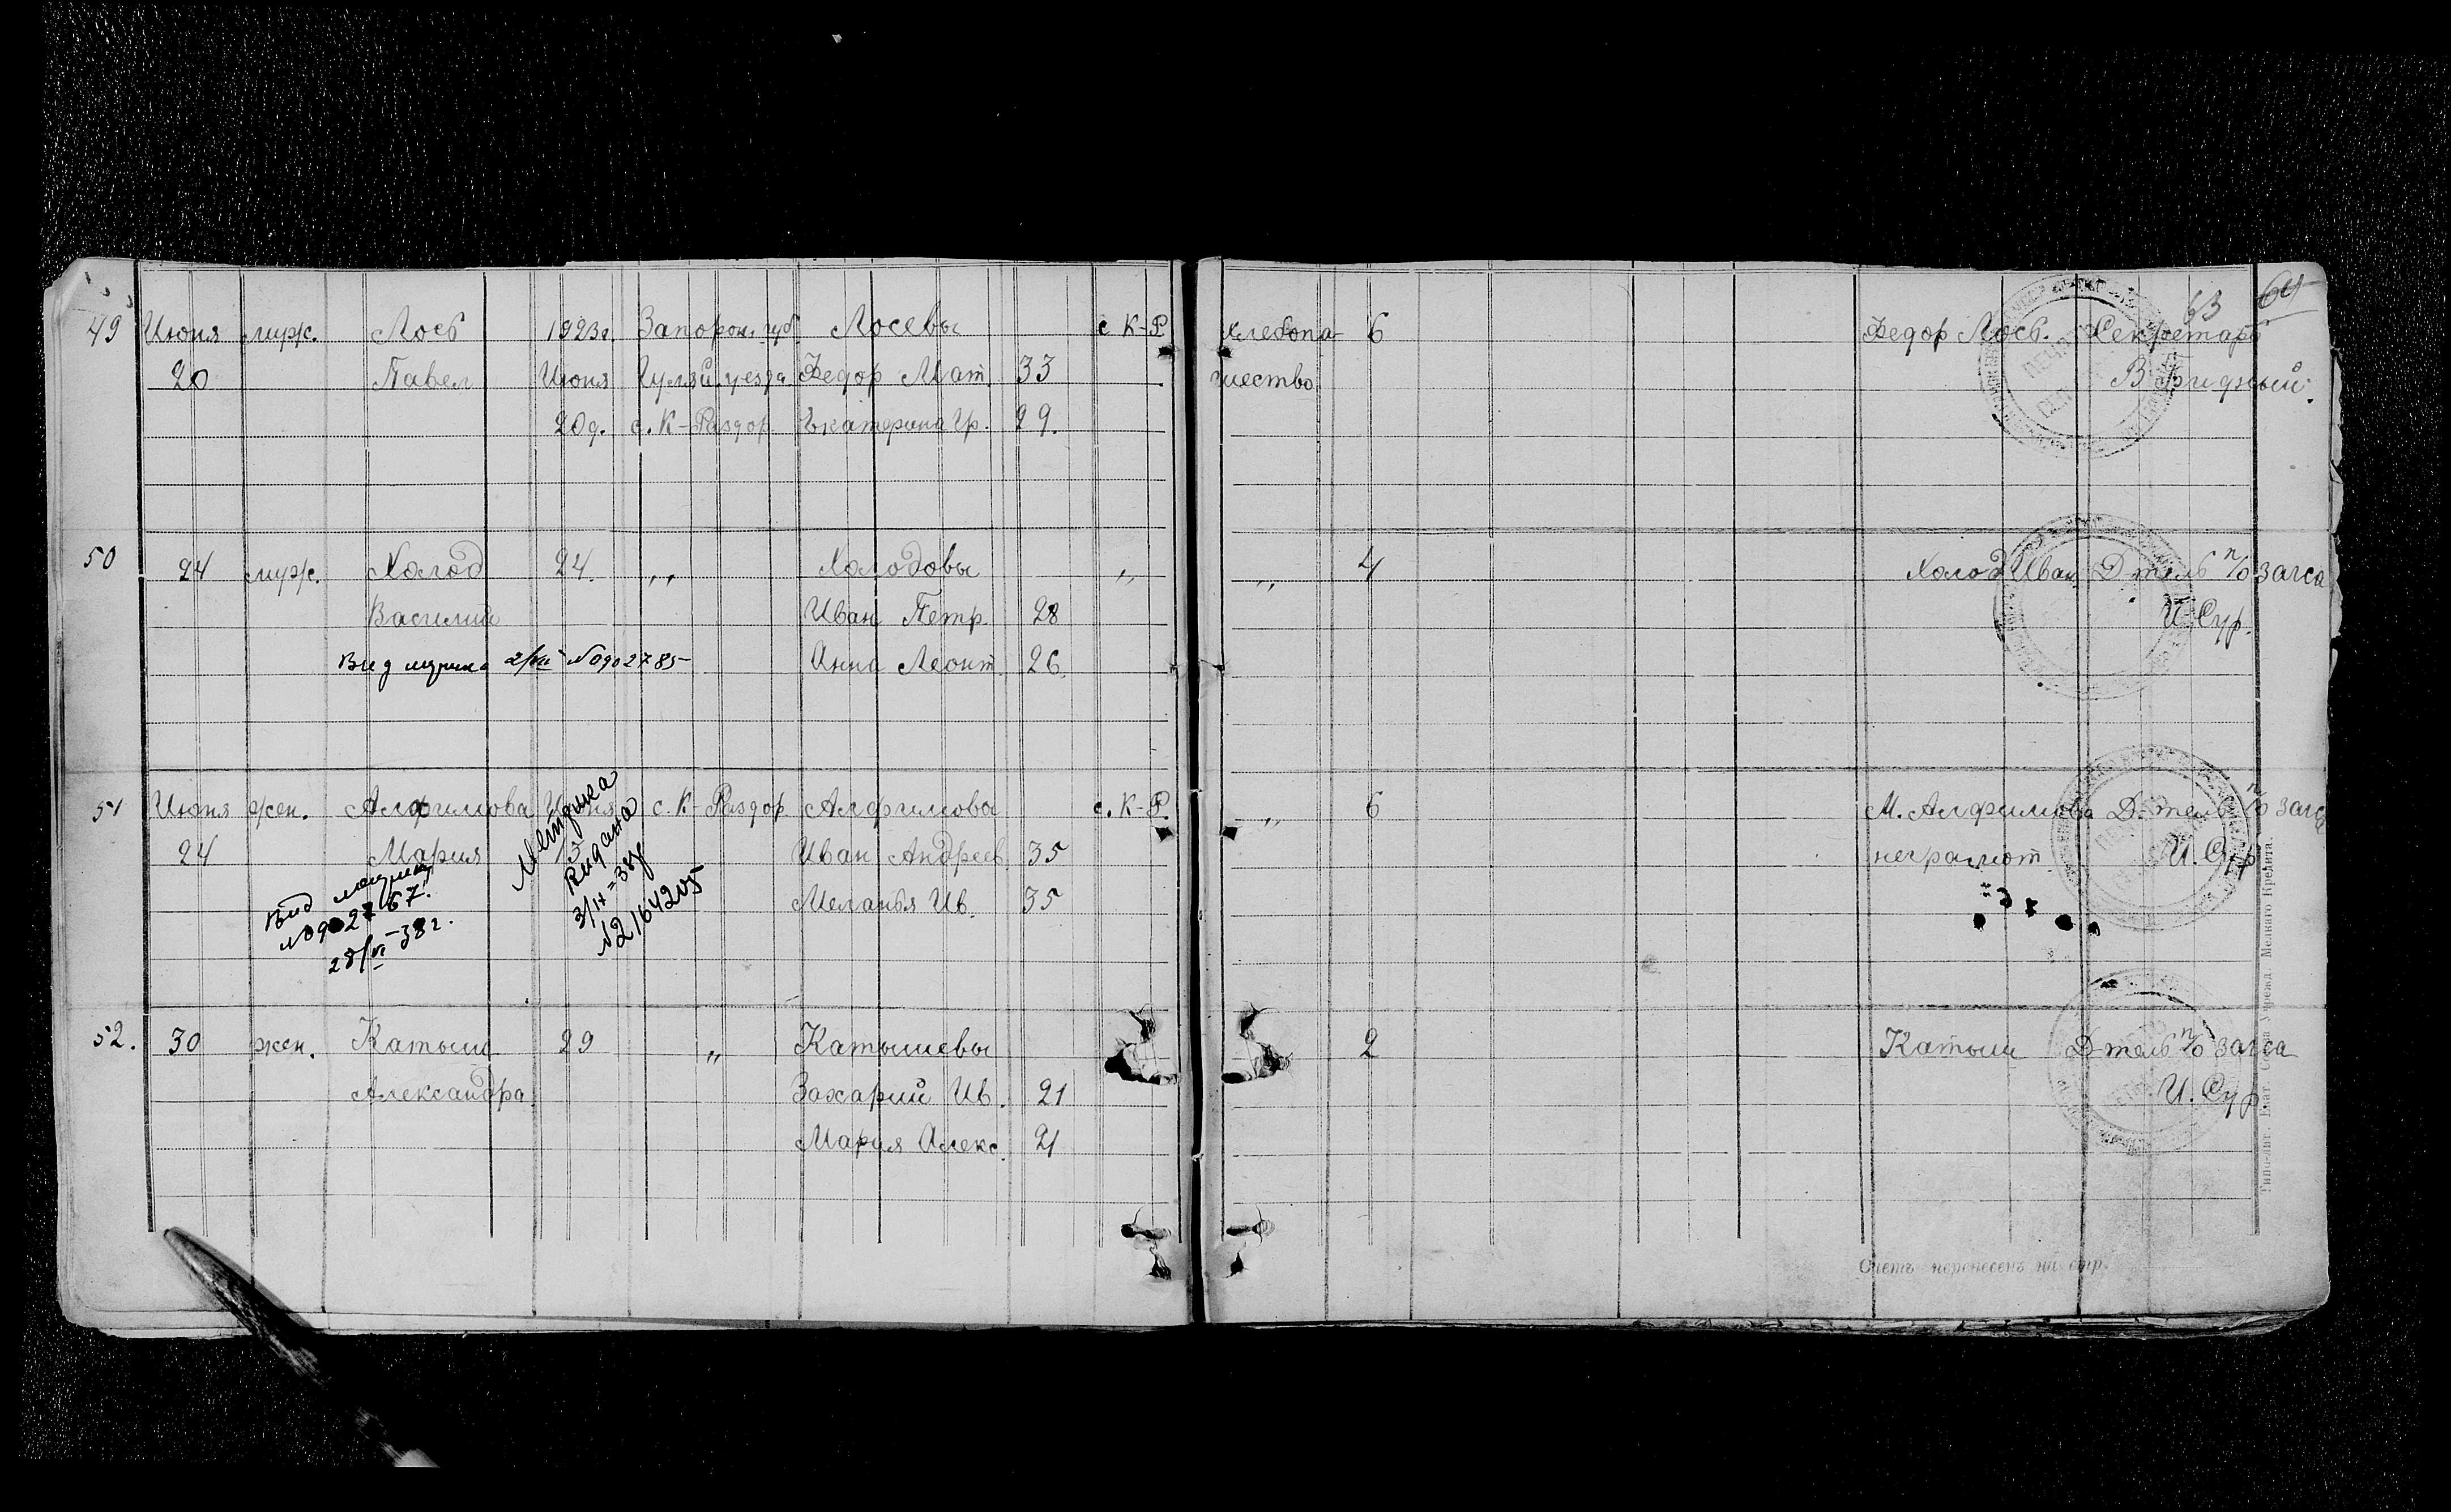 63 64
49 Июня муж. Лось 1923г. Запорож. губ. Лосевы с К-Р. хлебопа- 6 Федор Лось. Секретарь
20 Павел Июня Гуляй. уезда Федор Мат. 33 шество В Бидный.
20д. с. К-Раздор. Екатерина Гр. 29.
50 24 муж. Холод 24. ,, Холодовы ,, ,, 4 Холод Иван Д-тель п/о загса
Василий Иван Петр. 28 И. Сур.
0902785 Анна Леонт. 26.
51 Июня жен. Алфимова Июня с. К-Раздор. Алфимова с. К-Р. ,, 6 М. Алфимова Д-тель п/о загса
24 Мария Иван Андреев. 35 неграмот. И. Сур.
Меланья Ив. 35
№0902767.
28/VI-38г.
3/IX-38г
№2164205
52. 30 жен. Катыш 29 ,, Катышевы 2 Катыш Д-тель п/о загса
Александра. Захарий Ив. 21 И. Сур.
Мария Алекс. 21
Счетъ перенесенъ на стр.